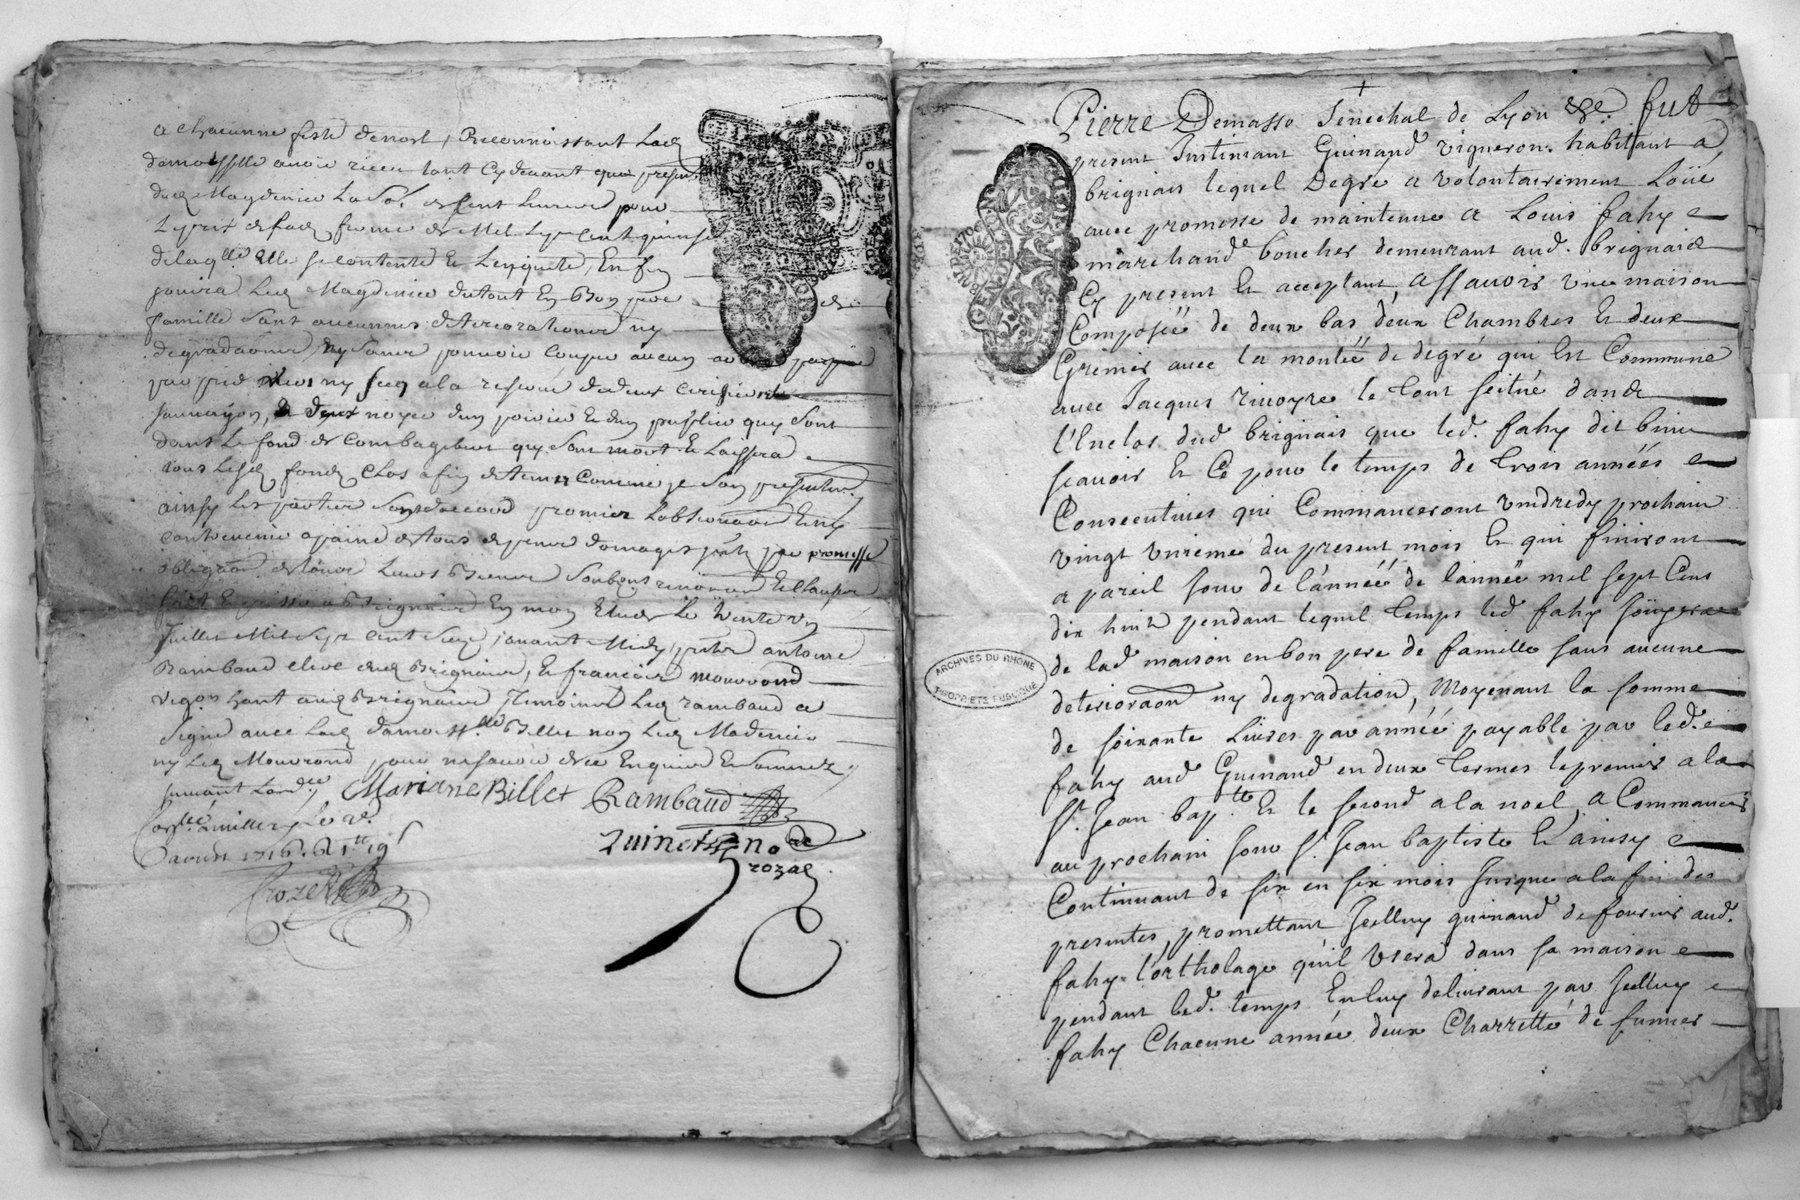 a chacunne feste denoel, Reconnoissant Lad
damoiselle avoir receu tout cydevant que présent
dud Magdinier La So.
Le prix de lad ferme de Mil Sept Cent quinze
delaqlle Elle se contente & Lenquitte, En fin
jouira Led Magdinier dutout En Bon pere
famille sans aucunnes deterioration ny
degradaons, ny sans pouvoir couper aucun
par pied ny sec a la reserve de deux cerisiers
sauvageon, & deux noyer dun poirier & dun
dans Le fond de Combagibert quy sont mort & Laissera
tous Lesd fonds Clos afin detemps Comme je son
ainsy Les parties Sont daccord promis Lobserver & ny
contrevenir apaine detous despens domages par promesse
obligaon de tous Leurs Biens
fait & passé a Brignais En mon Etude Le Vente un
Juillet Mil Sept cent Seize, avant Midy, antoine
Rambaud clerc dud Brignais, & francois Mouvrond
vigon hant aud Brignais temoins Led rambaud a
Signé avec Lad damoiselle Billet non Led Madinier
ny Led Mouvrond pour nesavoir de ce Enquis & Sommez
suivant Lord.
Mariane Billet Rambaud
Quinet no re
rozal
aoust 1716
Crozet
Pierre Demasso Senechal de Lyon &c. fut
present Justinïant Guinand vigneron habitant a
brignais lequel Degre a volontairement Loüé
avec promesse de maintenue a Louis fahy
marchand boucher demeurant aud. brignais
Cy present Et acceptant, assavoir une maison
Composée de deux bas, deux Chambres Et deux
Greniers avec la montée de degré qui Est Commune
avec Jacques rivoyre le tout scitué dans
l'Enclos dud brignais que led. fahy dit bien
scavoir Et Ce pour le temps de trois années
Consecutives qui Commanceront vendredy prochain
vingt unieme du present mois Et qui finiront
a pareil jour de l'année de lannée mil sept Cens
dix huit pendant lequel temps led fahy joüyra
de lad maison en bon pere de famille sans aucune
deterioraon ny degradation, Moyenant la somme
de soixante Livres par année payable par led.
fahy aud Guinand en deux termes le premier a la
St. Jean bapte. Et le second a la noel, a Commancer
au prochain jour St. Jean baptiste Et ainsy
Continuant de six en six mois Jusque a la fin des
presentes, promettant Jcelluy guinand de fournir aud.
fahy l'ortholage qu'il usera dans sa maison
pendant led. temps En luy delivrant par Jcelluy
fahy Chacune année deux Charretté de fumier
GENERALITE DE LYON
ARCHIVES DU RHONE
PROPRIETE PUBLIQUE